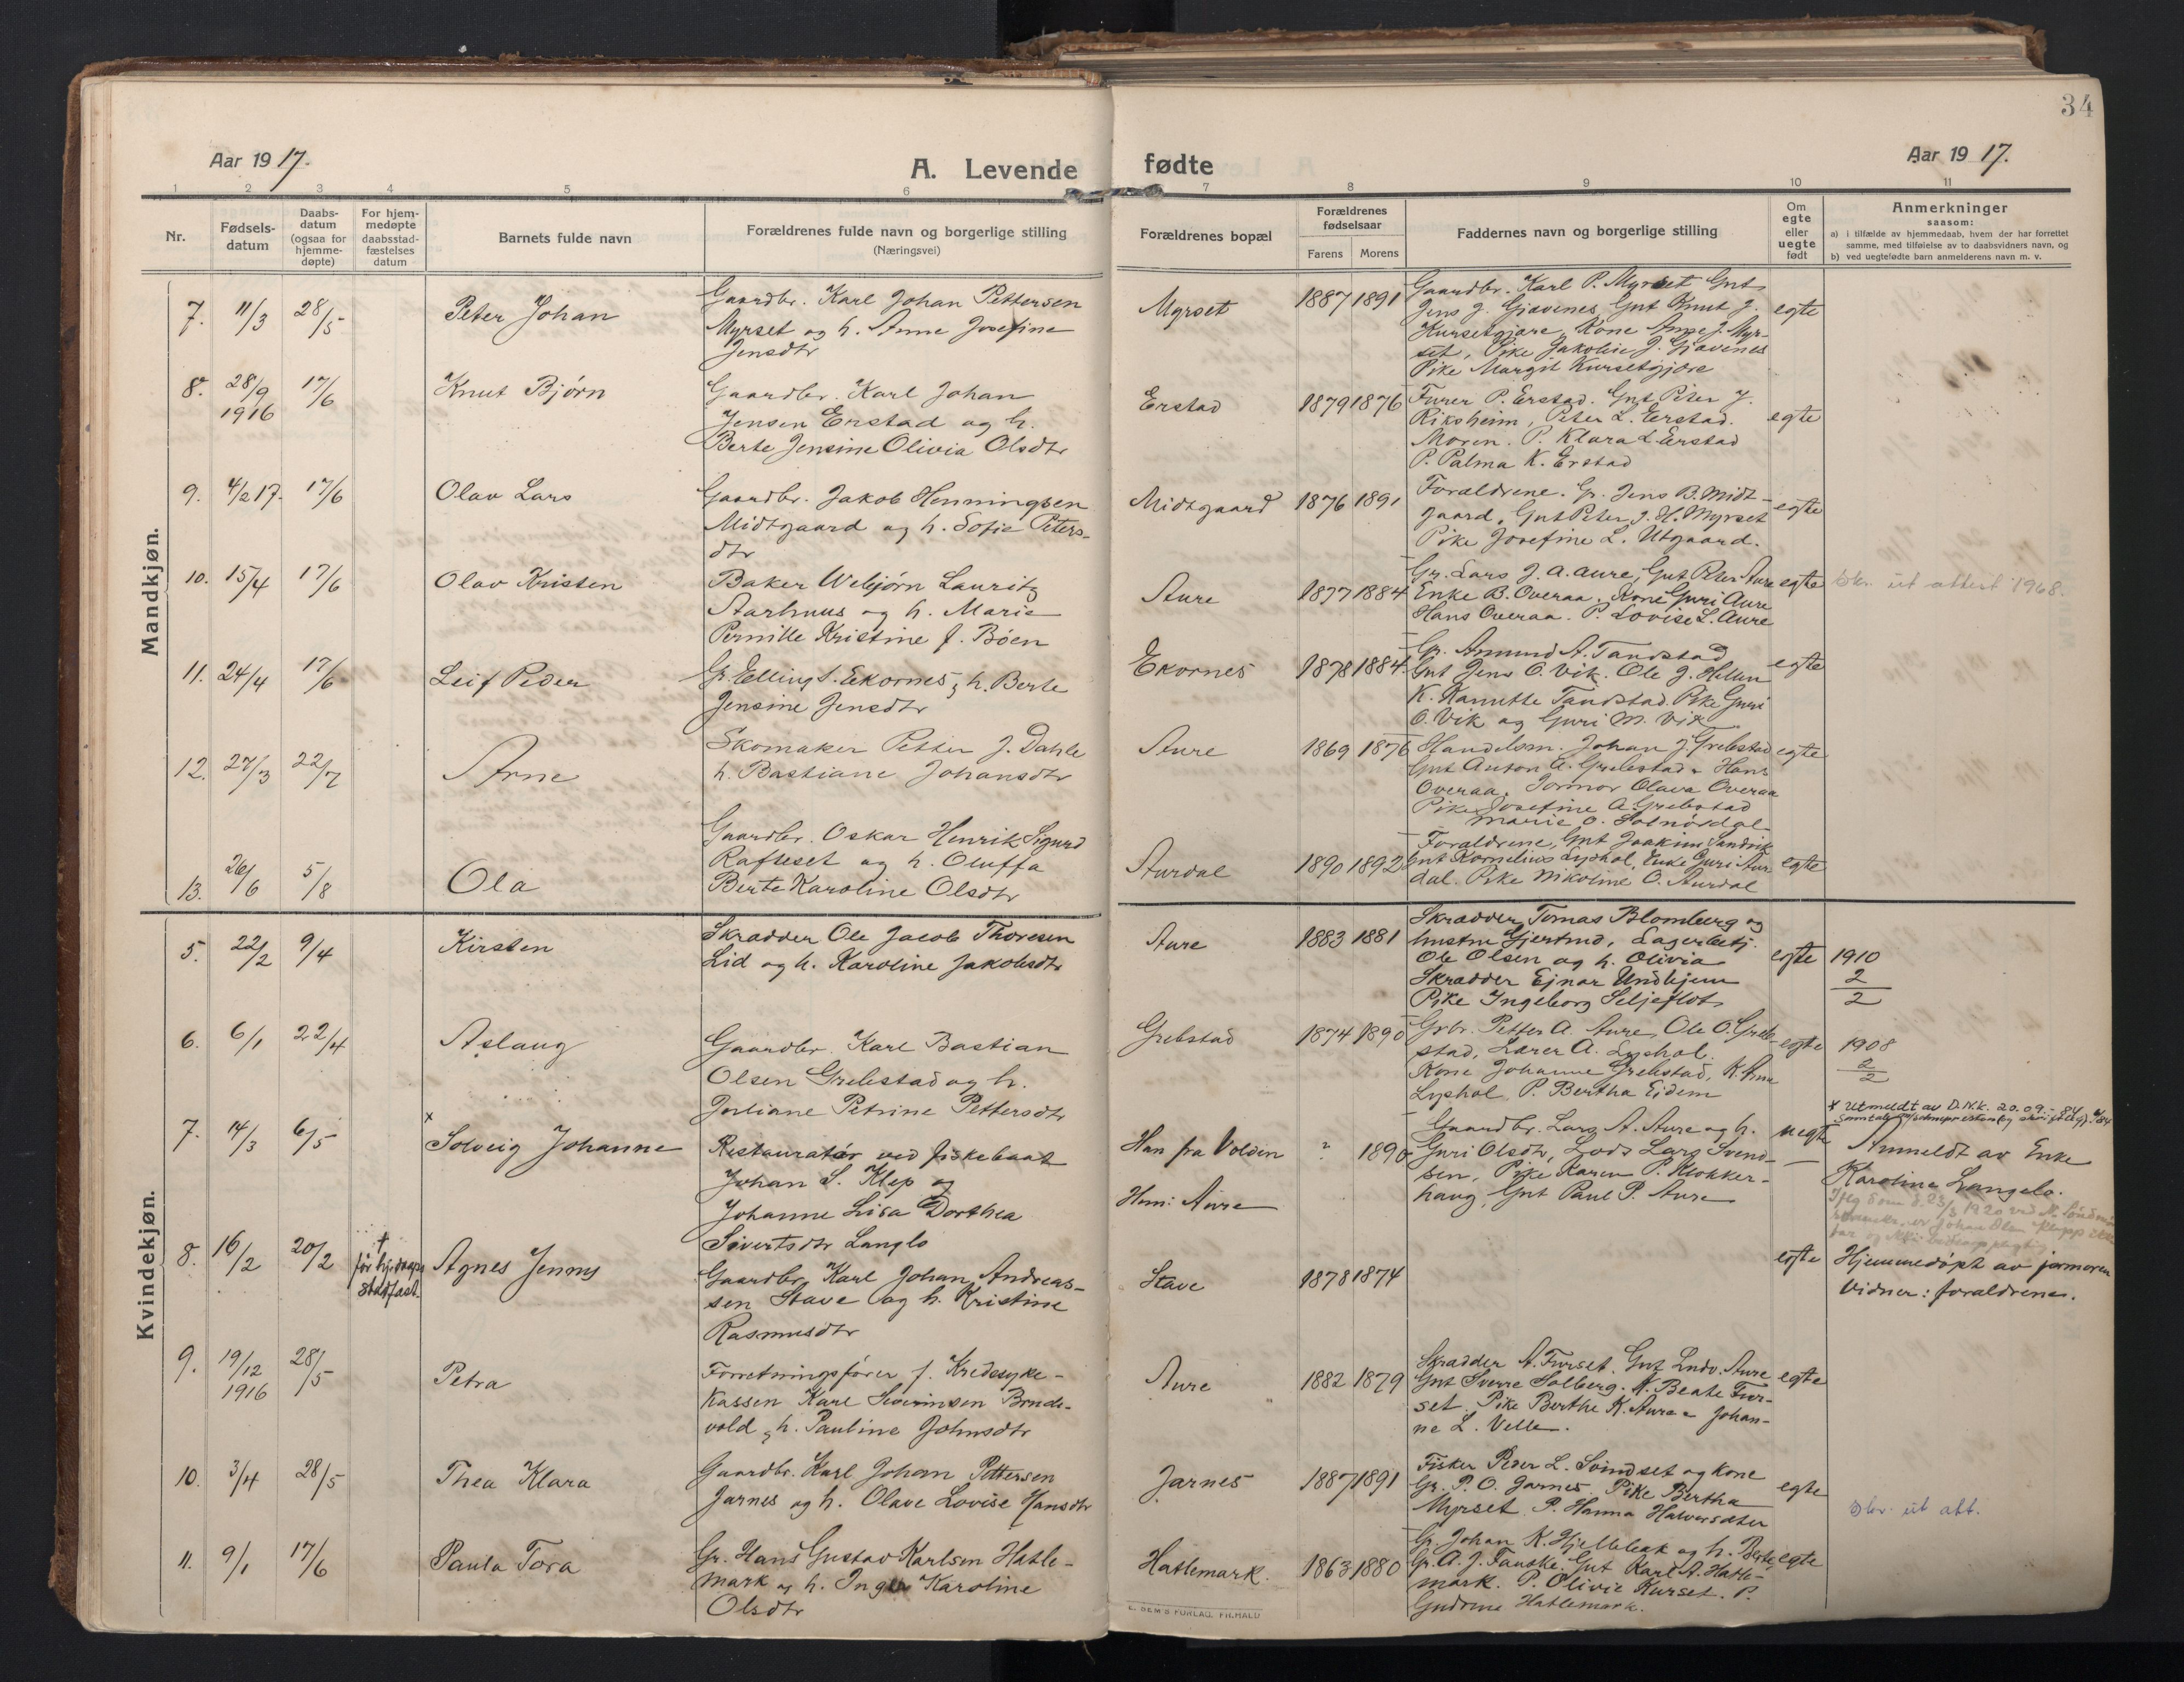 34
Aar 1917.
A. Levende fødte
Aar 1917.
1 2 3 4 5 6 7 8 9 10 11
Nr.
Fødsels-
datum
Daabs-
datum
(ogsaa for
hjemme-
døpte)
For hjem-
medøpte
daabsstad-
fæstelses
datum
Barnets fulde navn
Forældrenes fulde navn og borgerlige stilling
(Næringsvei)
Forældrenes bopæl
Forældrenes
fødselsaar
Farens Morens
Faddernes navn og borgerlige stilling
Om
egte
eller
uegte
født
Anmerkninger
saasom:
a) i tilfælde av hjemmedaab, hvem der har forrettet
samme, med tilføielse av to daabsvidners navn, og
b) ved uegtefødte barn anmelderens navn m. v.
Mandkjøn.
7. 11/3 28/5 Peter Johan
Gaardbr. Karl Johan Pettersen
Myrset og h. Anne Josefine
Jensdtr
Myrset 1887 1891
Gaardbr. Karl P. Myrset Gut
Jens J. Gjævenes, Gut Knut J.
Kursetgjære, Kone Anne J. Myr-
set, Pike Jakobie J. Gjævenes
Pike Margit Kursetgjære
egte
8. 28/9 1916 17/6 Knut Bjørn
Gaardbr. Karl Johan
Jensen Erstad og h.
Berte Jensine Olivia Olsdtr
Erstad 1879 1876
Furer P. Erstad. Gut Peter J.
Riksheim, Peter L. Erstad.
Moren. P. Klara L. Erstad
P. Palma K. Erstad
egte
9. 4/2 17. 17/6 Olav Lars
Gaardbr. Jakob Henningsen
Midtgaard og h. Sofie Peters-
dtr
Midtgaard 1876 1891
Forældrene. Gr. Jens B. Midt-
gaard, Gut Peter J. H. Myrset
Pike Josefine L. Utgaard.
egte
10. 15/4 17/6 Olav Kristen
Baker Webjørn Lauritz
Aarhuus og h. Marie
Pernille Kristine f. Böen
Aure 1877 1884
Gr. Lars J. A. Aure, Gut Peter Aure
Enke B. Overaa. Kone Guri Aure
Hans Overaa. P. Lovise L. Aure
egte
Skr. ut attest 1968.
11. 24/4 17/6 Leif Peder
Gr. Elling S. Ekornes, h. Berte
Jensine Jensdtr
Ekornes 1878 1884.
Gr. Amund A. Tandstad
Gut Jens O. Vik. Ole J. Hellen
K. Kanutte Tandstad. Pike Guri
O. Vik og Guri M. Vik
egte
12. 27/3 22/7 Arne
Skomaker Petter J. Dahle
h. Bastiane Johansdtr
Aure 1869 1876
Handelsm. Johan J. Grebstad
Gut Anton A. Grebstad, Hans
Overaa, Jormor Olava Overaa
Pike Josefine A. Grebstad
Marie O. Solnørdal
egte
13. 26/6 5/8 Ola
Gaardbr. Oskar Henrik Sigurd
Rafteset og h. Oluffa
Berte Karoline Olsdtr
Aurdal 1890 1892
Forældrene, Gut Joakim Sandvik
Gut Kornelius Lyshol, Enke Guri Aur
dal. Pike Nikoline O. Aurdal
egte
Kvindekjøn.
5. 22/2 9/4 Kirsten
Skradder Ole Jacob Thoresen
Lid og h. Karoline Jakobsdtr
Aure 1883 1881
Skrædder Tomas Blomberg og
hustru Gjertrud, Lagerbetj.
Ole Olsen og h. Olivia
Skradder Ejnar Undhjem
Pike Ingeborg Seljeflot
egte
1910
2
2
6. 6/1 22/4 Aslaug
Gaardbr. Karl Bastian
Olsen Grebstad og h.
Juliane Petrine Pettersdtr
Grebstad 1874 1890
Grbr. Petter A. Aure, Ole O. Greb-
stad, Lærer A. Lyshol.
Kone Johanne Grebstad, K. Anna
Lyshol, P. Bertha Eidem
egte
1908
2
2
7. 14/3 6/5 x Solveig Johanne
Restauratør ved fiskebaat
Johan S. Klep og
Johanne Lisa Dorthea
Sivertsdtr Langlo
Han fra Volden
Hun: Aure
? 1890
Gaardbr. Lars A. Aure og h.
Guri Olsdtr, Lods Lars Svend-
sen, Pike Karen P. Klokker-
haug, Gut Paul P. Aure
uegte
x Utmeldt av D.N.k. 20.09.-84
Anmeldt av Enke
Karoline Langelo.
8. 16/2 20/2 †
før hj.daaps
stadfæst.
Agnes Jenny
Gaardbr. Karl Johan Andreas-
sen Stave og h. Kristine
Rasmusdtr
Stave 1878 1874
egte
Hjemmedøpt av jormoren
Vidner: forældrene.
9. 19/12 1916 28/5 Petra
Forretningsfører f. Kredssyke-
kassen Karl Severinsen Brude-
vold, h. Pauline Johnsdtr
Aure 1882 1879
Skradder A. Furset. Gut Ludv. Aure
Gut Sverre Solberg. K. Beate Fur-
set. Pike Berthe K. Aure - Johan-
ne L. Velle.
egte
10. 3/4 28/5 Thea Klara
Gaardbr. Karl Johan Pettersen
Jarnes og h. Olave Lovise Hansdtr
Jarnes 1887 1891
Fisker Peder L. Svindset og kone
Gr. P. O. Jarnes, Pike Bertha
Myrset. P. Hanna Halvorsdter
egte
Skr. ut att.
11. 9/1 17/6 Paula Tora
Gr. Hans Gustav Karlsen Hatle-
mark og h. Inger Karoline
Olsdtr
Hatlemark. 1863 1880
Gr. Johan K. Hjellebak og h. Berte,
Gr. A. J. Fauske. Gut Karl A. Hatle-
mark. P. Olivie Kurset. P.
Gudrune Hatlemark.
egte
E. SEM'S FORLAG, FR.HALD